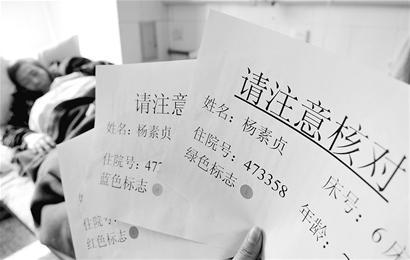 请注意核对
姓名：杨素贞
床号：6床
住院号：473358
年龄：
绿色标志
请注意
姓名：杨素贞
住院号：47
蓝色标志
住院号：
红色标志